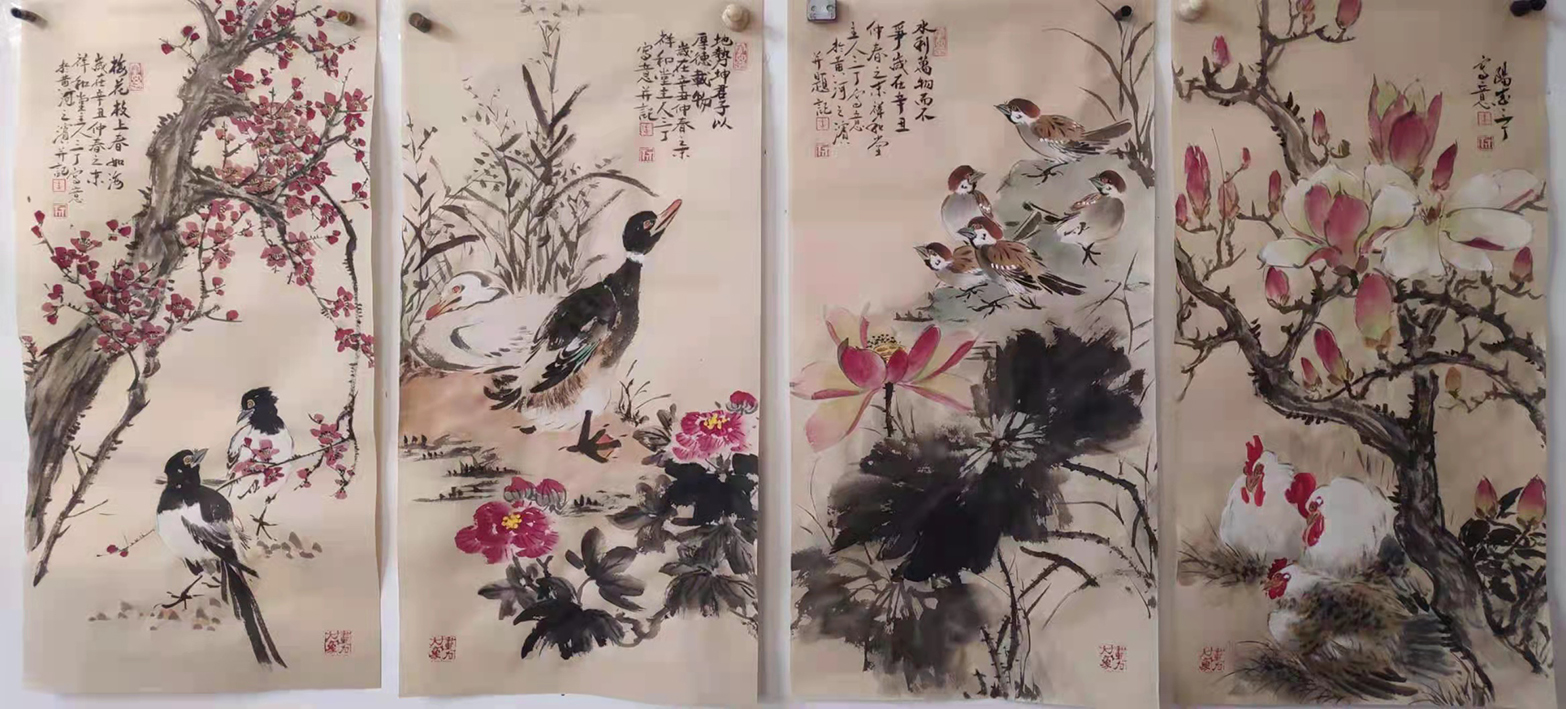 梅花枝上春如海
歲在辛丑仲春之末
祥和堂主人三丁寫意
於黄河之濱并記
地勢坤君子以
厚德載物
歲在辛丑仲春之末
祥和堂主人三丁
寫意并記
水利萬物而不
爭歲在辛丑
仲春之末祥和堂
主人三丁寫意
於黄河之濱
并題記
三丁
寫意